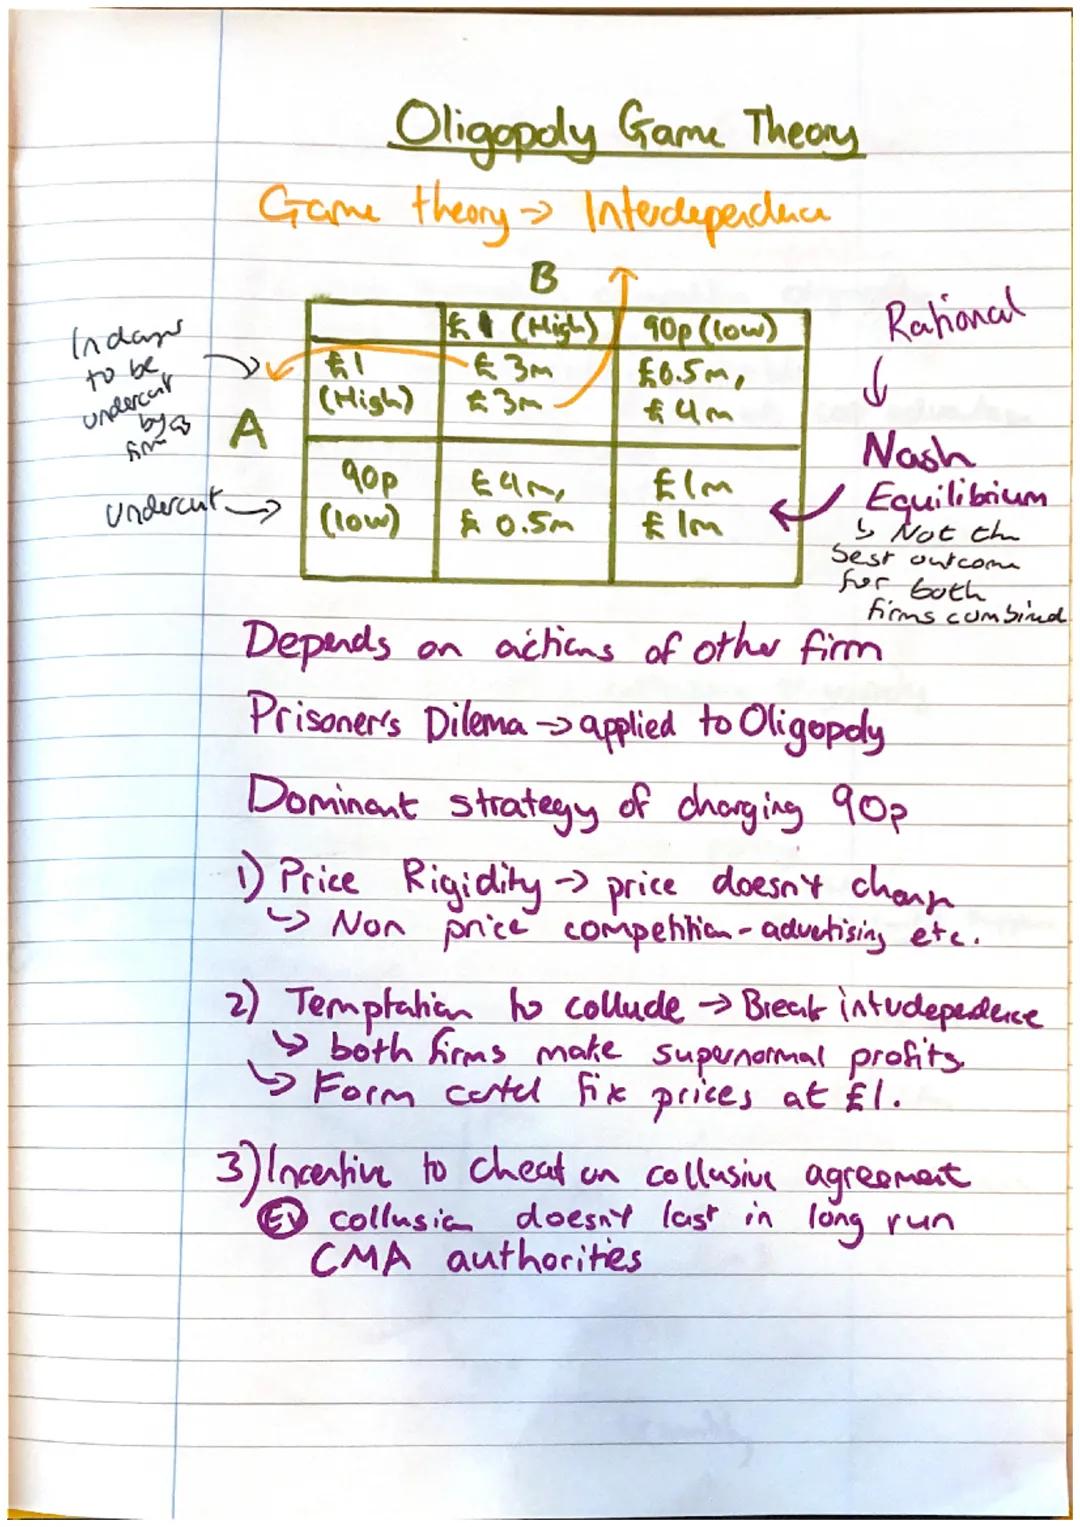 Oligopoly Game Theory
Game theory → Interdependence
B
£1 (High) 90p (low)
£1 £3m £0.5m,
(High) £3m £4m
A
90p £4m, £1m
(low) £0.5m £1m
In danger
to be
undercut
by
firm
undercut →
Rational
↓
Nash
Equilibrium
↳ Not the
best outcome
for both
firms combined
Depends on actions of other firm
Prisoner's Dilema → applied to Oligopoly
Dominant strategy of charging 90p
1) Price Rigidity → price doesn't change
↳ Non price competition - advertising etc.
2) Temptation to collude → Break interdependence
↳ both firms make supernormal profits
↳ Form cartel fix prices at £1.
3) Incentive to cheat on collusive agreement
EV collusion doesn't last in long run
CMA authorities